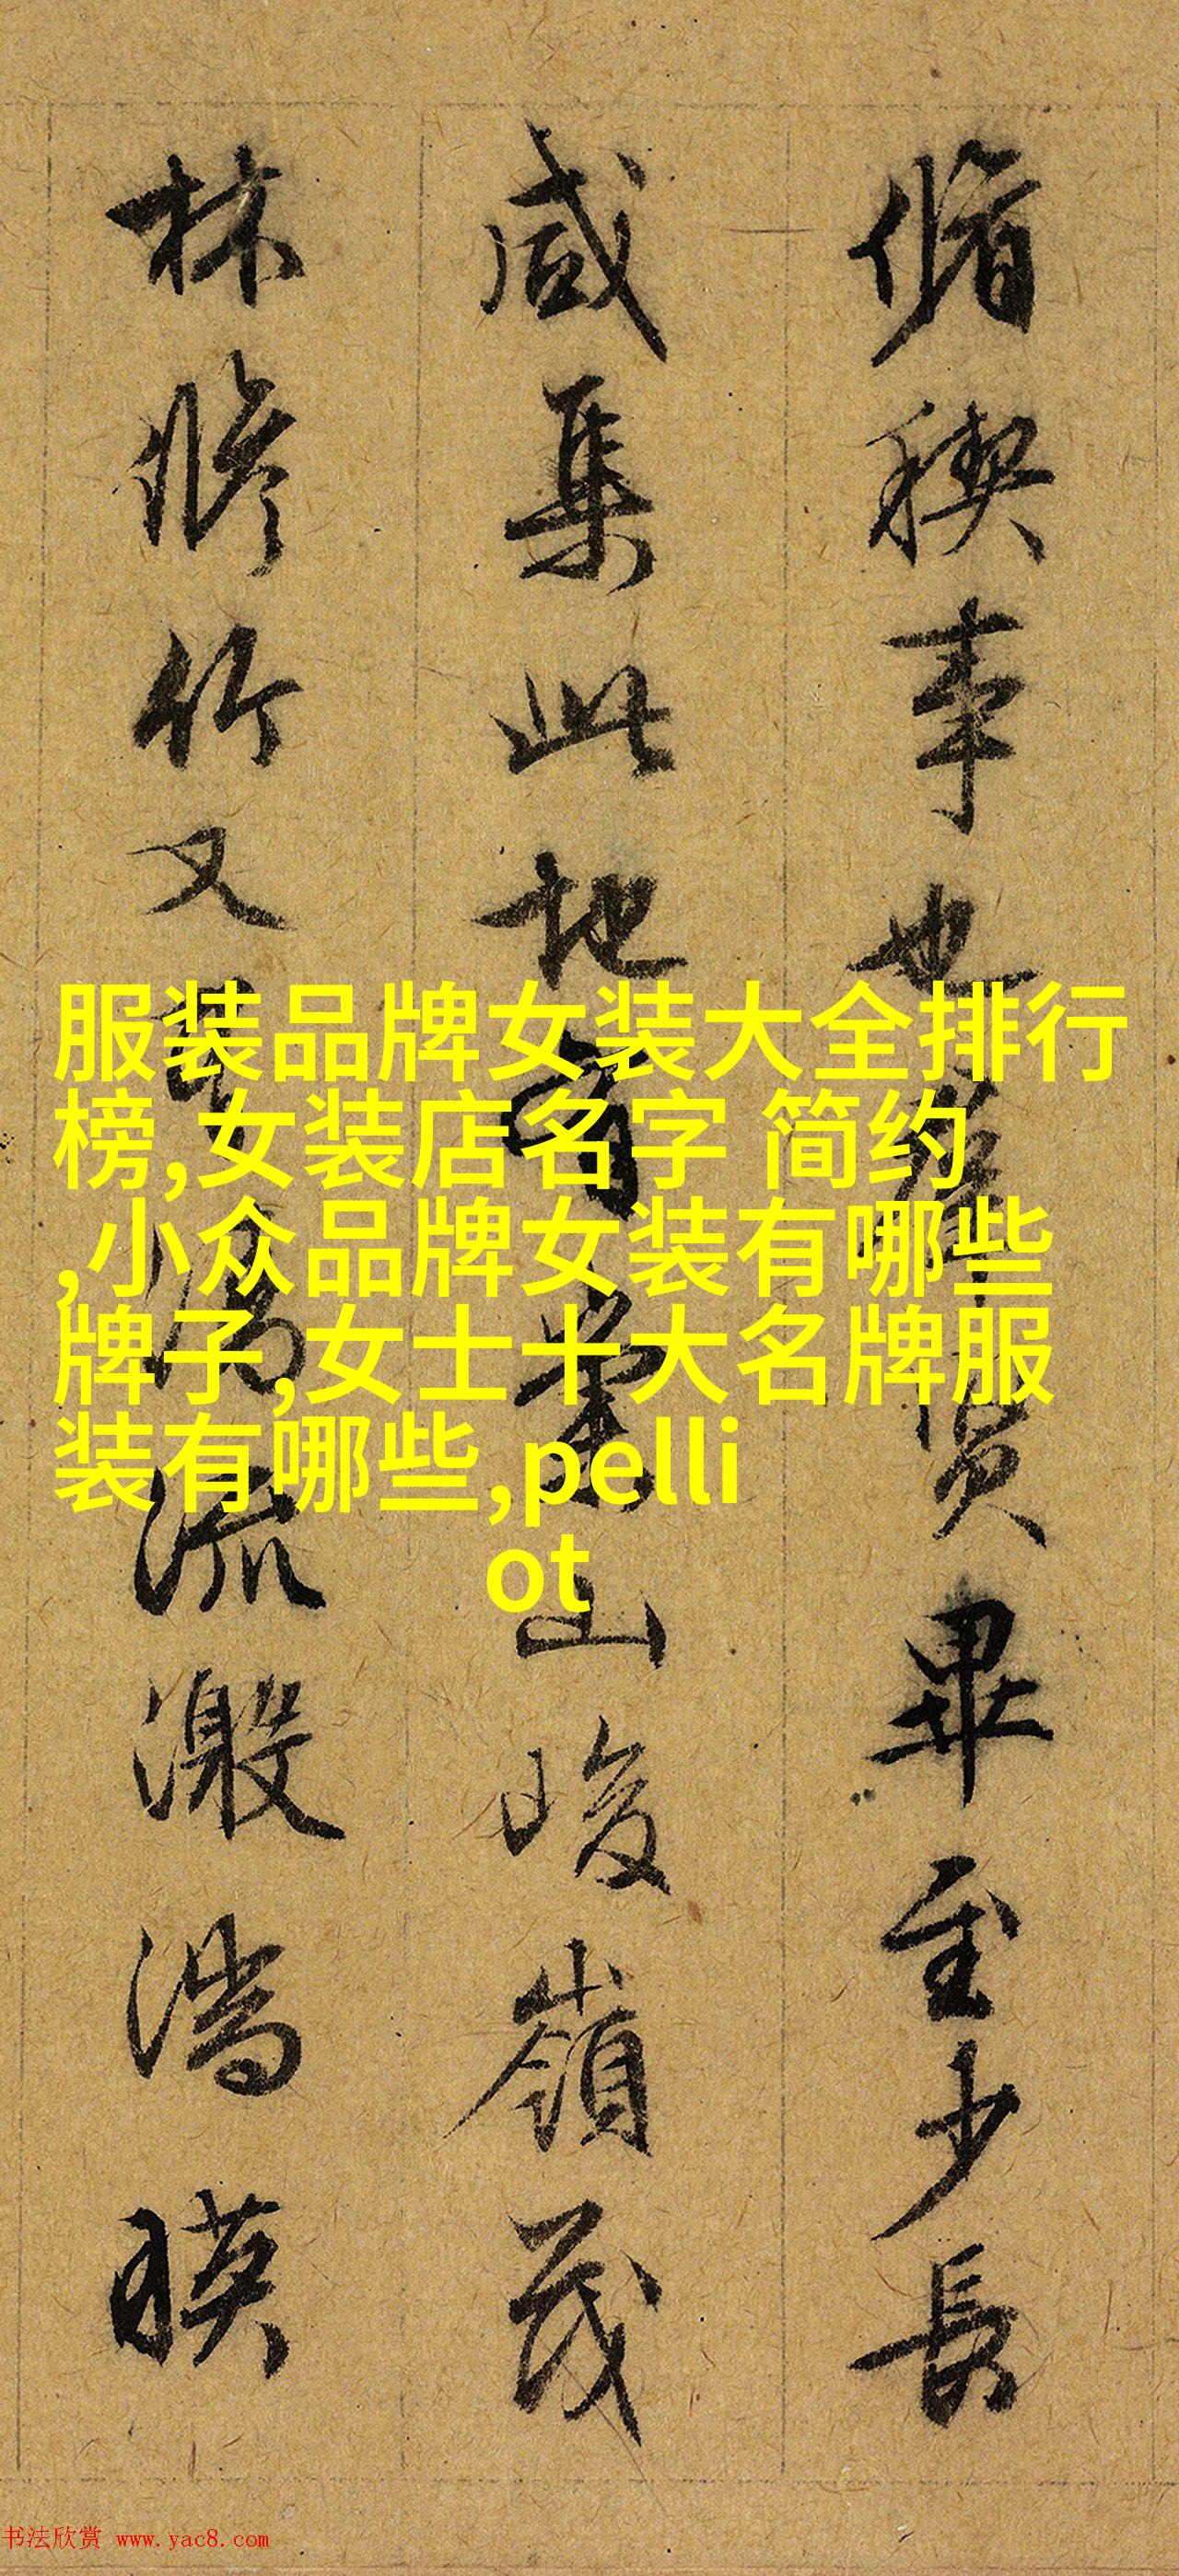 脩稧事也羣賢畢至少長
咸集此地有崇山峻領茂
林脩竹又有清流激湍暎
服装品牌女装大全排行
榜,女装店名字 简约
,小众品牌女装有哪些
牌子,女士十大名牌服
装有哪些,pelli
ot
书法欣赏 www.yac8.com